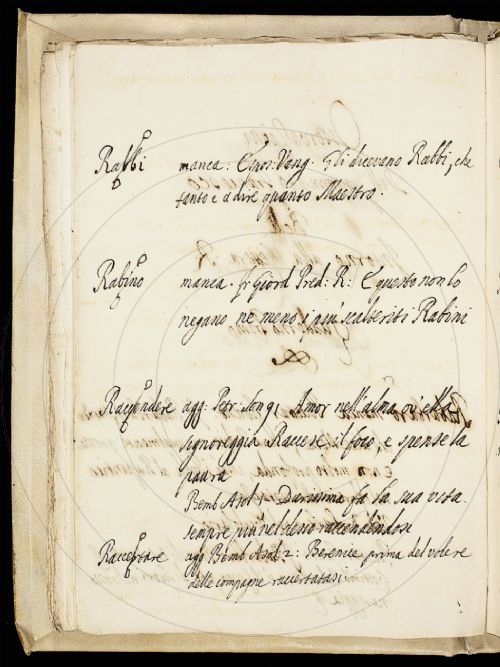 Rabbi manca: Vang. Gli dicevano Rabbi, che
tanto è a dire quanto Maestro.
Rabino manca. fr Giord Pred: R: E questo non lo
negano ne meno i piu scalteriti Rabini
Raccendere agg: Petr: Song: Amor nell'alma,
signoreggia Raccese il foco, e spense la
paura
Bemb Asol: fa la sua vista
sempre più nel desio raccendendosi
Raccertare agg Bemb Asol: 2: Berenice prima del volere
delle compagne raccertatasi